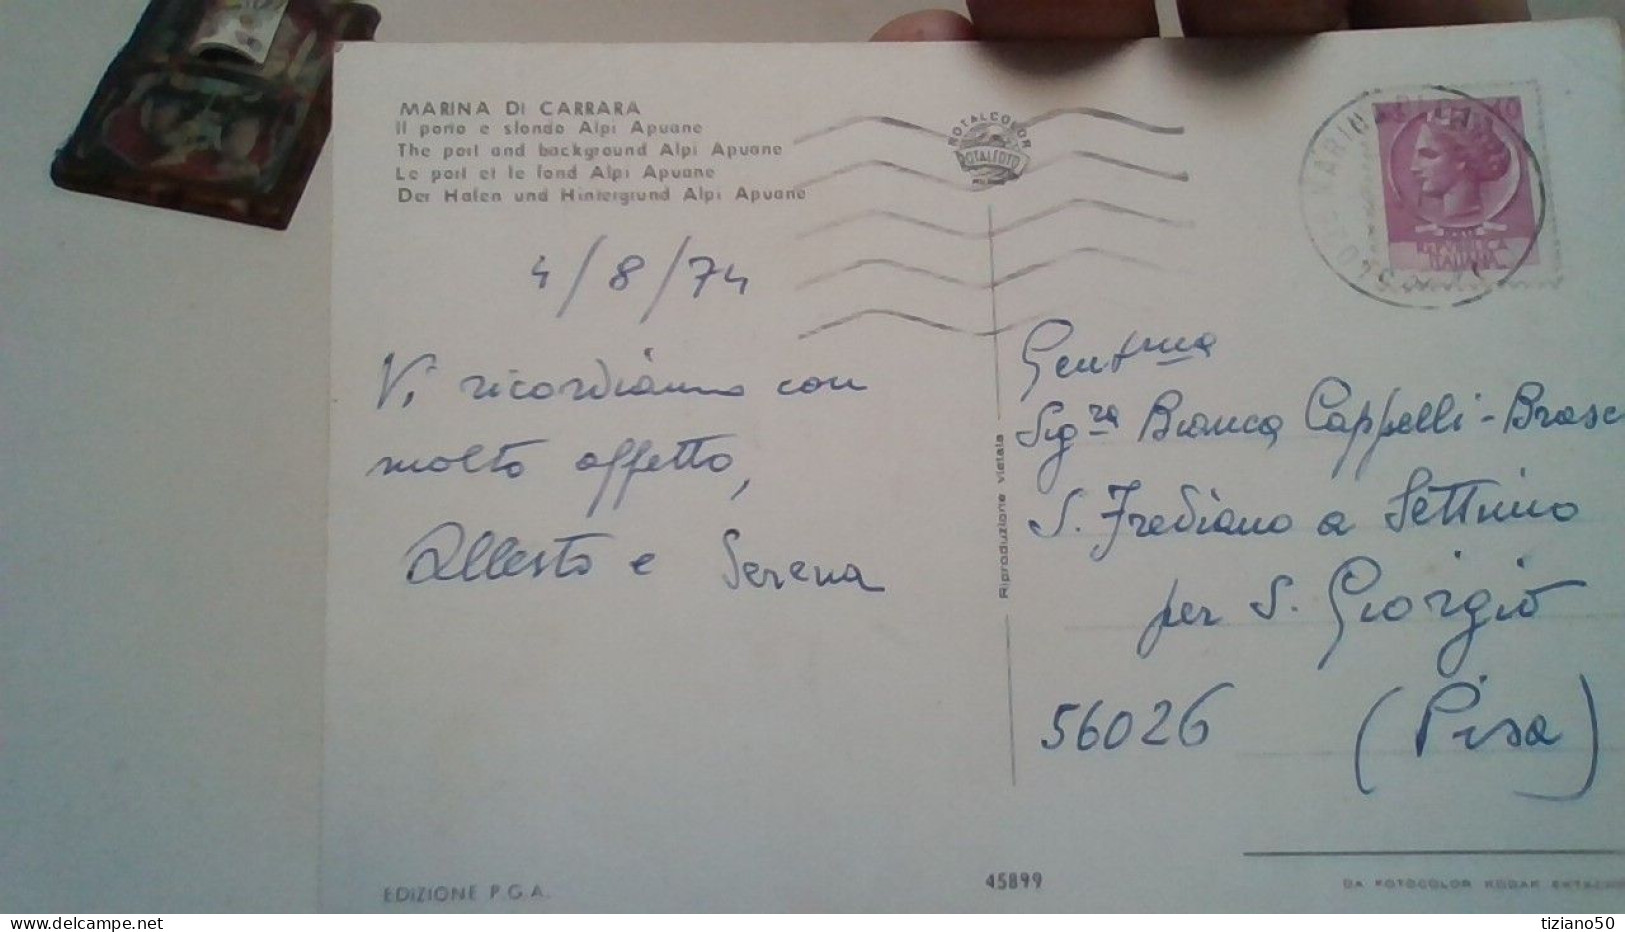 MARINA DI CARRARA
Il porto e sfondo Alpi Apuane
The port and background Alpi Apuane
Le port et le fond Alpi Apuane
Der Hafen und Hintergrund Alpi Apuane
ROTALCOLOR
ROTALFOTO
40
REPUBBLICA
ITALIANA
4/8/74
Vi ricordiamo con
molto affetto,
Alberto e Serena
Gent.ma
Sig.ra Bianca Cappelli-Brasc
S. Frediano a Settimo
per S. Giorgio
56026 (Pisa)
Riproduzione vietata
EDIZIONE P.G.A.
45899
DA FOTOCOLOR KODAK EKTACHR
delcampe.net
tiziano50